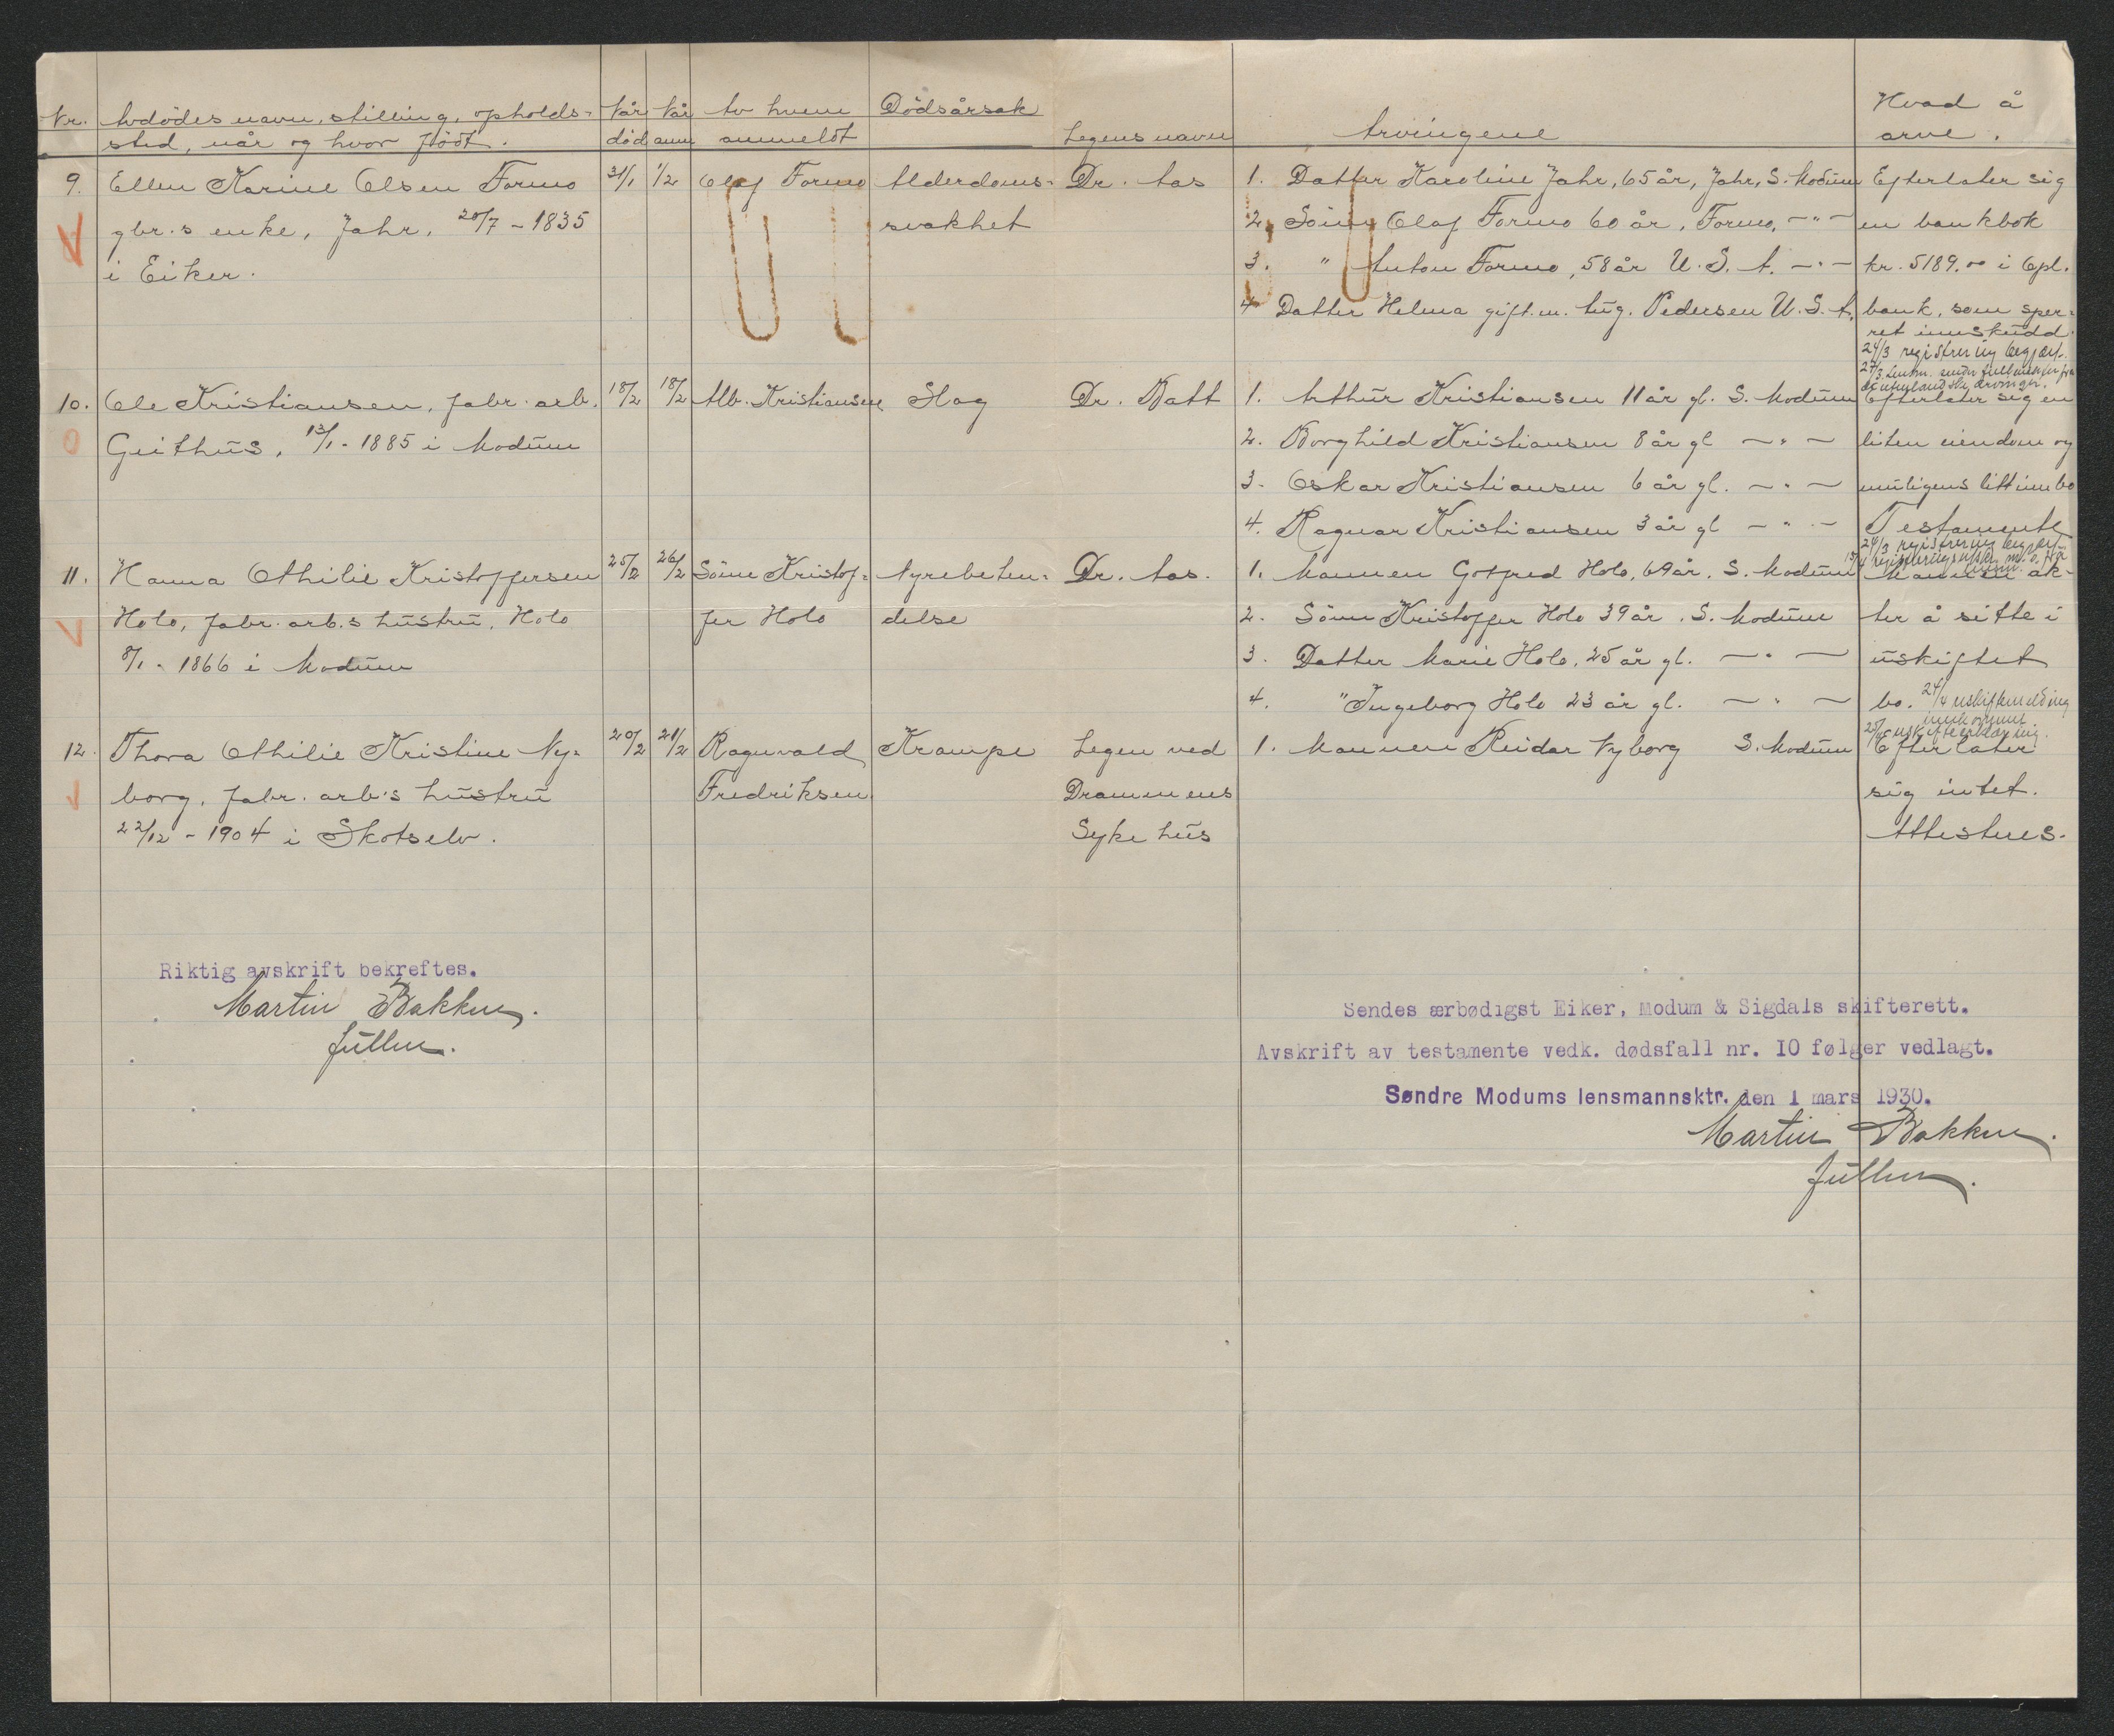 Nr. Avdødes navn, stilling, opholds- Når Når Av hvem Dødsårsak Legens navn Arvingene Hvad å
sted, når og hvor født. død anm anmeldt arve.
9. Ellen Karine Olsen Formo 31/1 1/2 Olaf Formo Alderdoms- Dr. Aas 1. Datter Karoline Jahr, 65 år, Jahr, S. Modum Efterlater sig
gbr.s enke, Jahr, 20/7 - 1835 svakhet 2. Sønn Olaf Formo 60 år, Formo, -"- en bankbok
i Eiker. 3. " Anton Formo, 58 år U.S.A. -"- kr. 5189.00 i Opl.
4 Datter Helma gift m. Aug. Pedersen U.S.A. bank, som sper-
ret innskudd.
24/3 registrering begjært.
10. Ole Kristiansen, fabr. arb. 18/2 18/2 Alb. Kristiansen Slag Dr. Batt 1. Arthur Kristiansen 11 år gl. S. Modum Efterlater sig en
Geithus, 13/1 - 1885 i Modum 2. Borghild Kristiansen 8 år gl -"- liten eiendom og
3. Oskar Kristiansen 6 år gl. -"- muligens litt innbo
4. Ragnar Kristiansen 3 år gl -"- Testamente
24/3 registrering begjært.
11. Hanna Othilie Kristoffersen 25/2 26/2 Sønn Kristof- Nyrebeten- Dr. Aas. 1. Mannen Gotfred Holo, 69 år. S. Modum Mannen ak-
Holo, fabr. arb.s hustru, Holo fer Holo delse 2. Sønn Kristoffer Holo 39 år. S. Modum ter å sitte i
8/1 - 1866 i Modum 3. Datter Marie Holo, 25 år gl. -"- uskiftet
4. " Ingeborg Holo 23 år gl. -"- bo. 24/4 uskiftemelding
innkommet
12. Thora Othilie Kristine Ny- 20/2 21/2 Ragnvald Krampe Legen ved 1. Mannen Reidar Nyborg S. Modum Efterlater
borg, fabr. arb.s hustru Fredriksen Drammens sig intet.
22/12 - 1904 i Skotselv. Sykehus Attestues.
Riktig avskrift bekreftes.
Martin Bakken.
fullm.
Sendes ærbødigst Eiker, Modum & Sigdals skifterett.
Avskrift av testamente vedk. dødsfall nr. IO følger vedlagt.
Søndre Modums lensmannsktr. den 1 mars 1930.
Martin Bakken.
fullm.